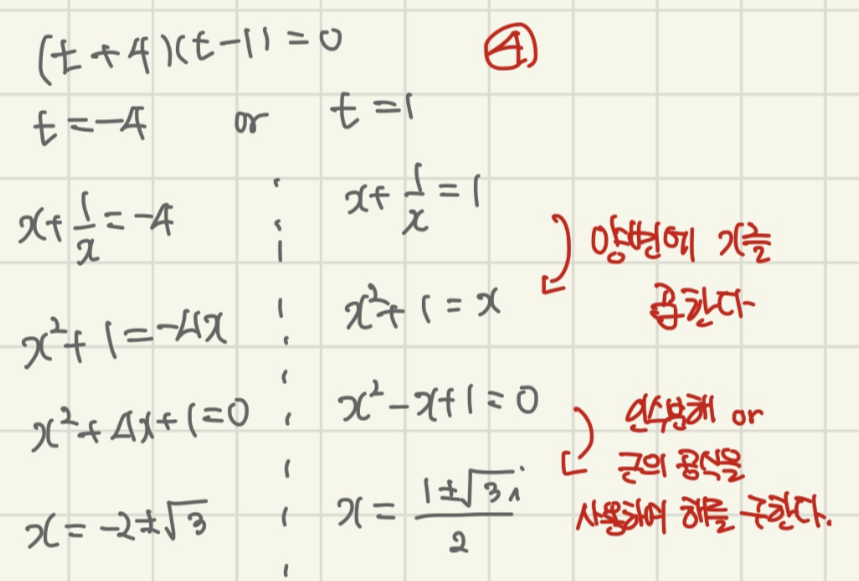 (t+4)(t-1)=0
④
t=-4 or t=1
x+1/x=-4
x+1/x=1
양변에 x를
곱한다
x²+1=-4x
x²+1=x
x²+4x+1=0
x²-x+1=0
인수분해 or
근의 공식을
사용하여 해를 구한다.
x=-2±√3
x=(1±√3i)/2